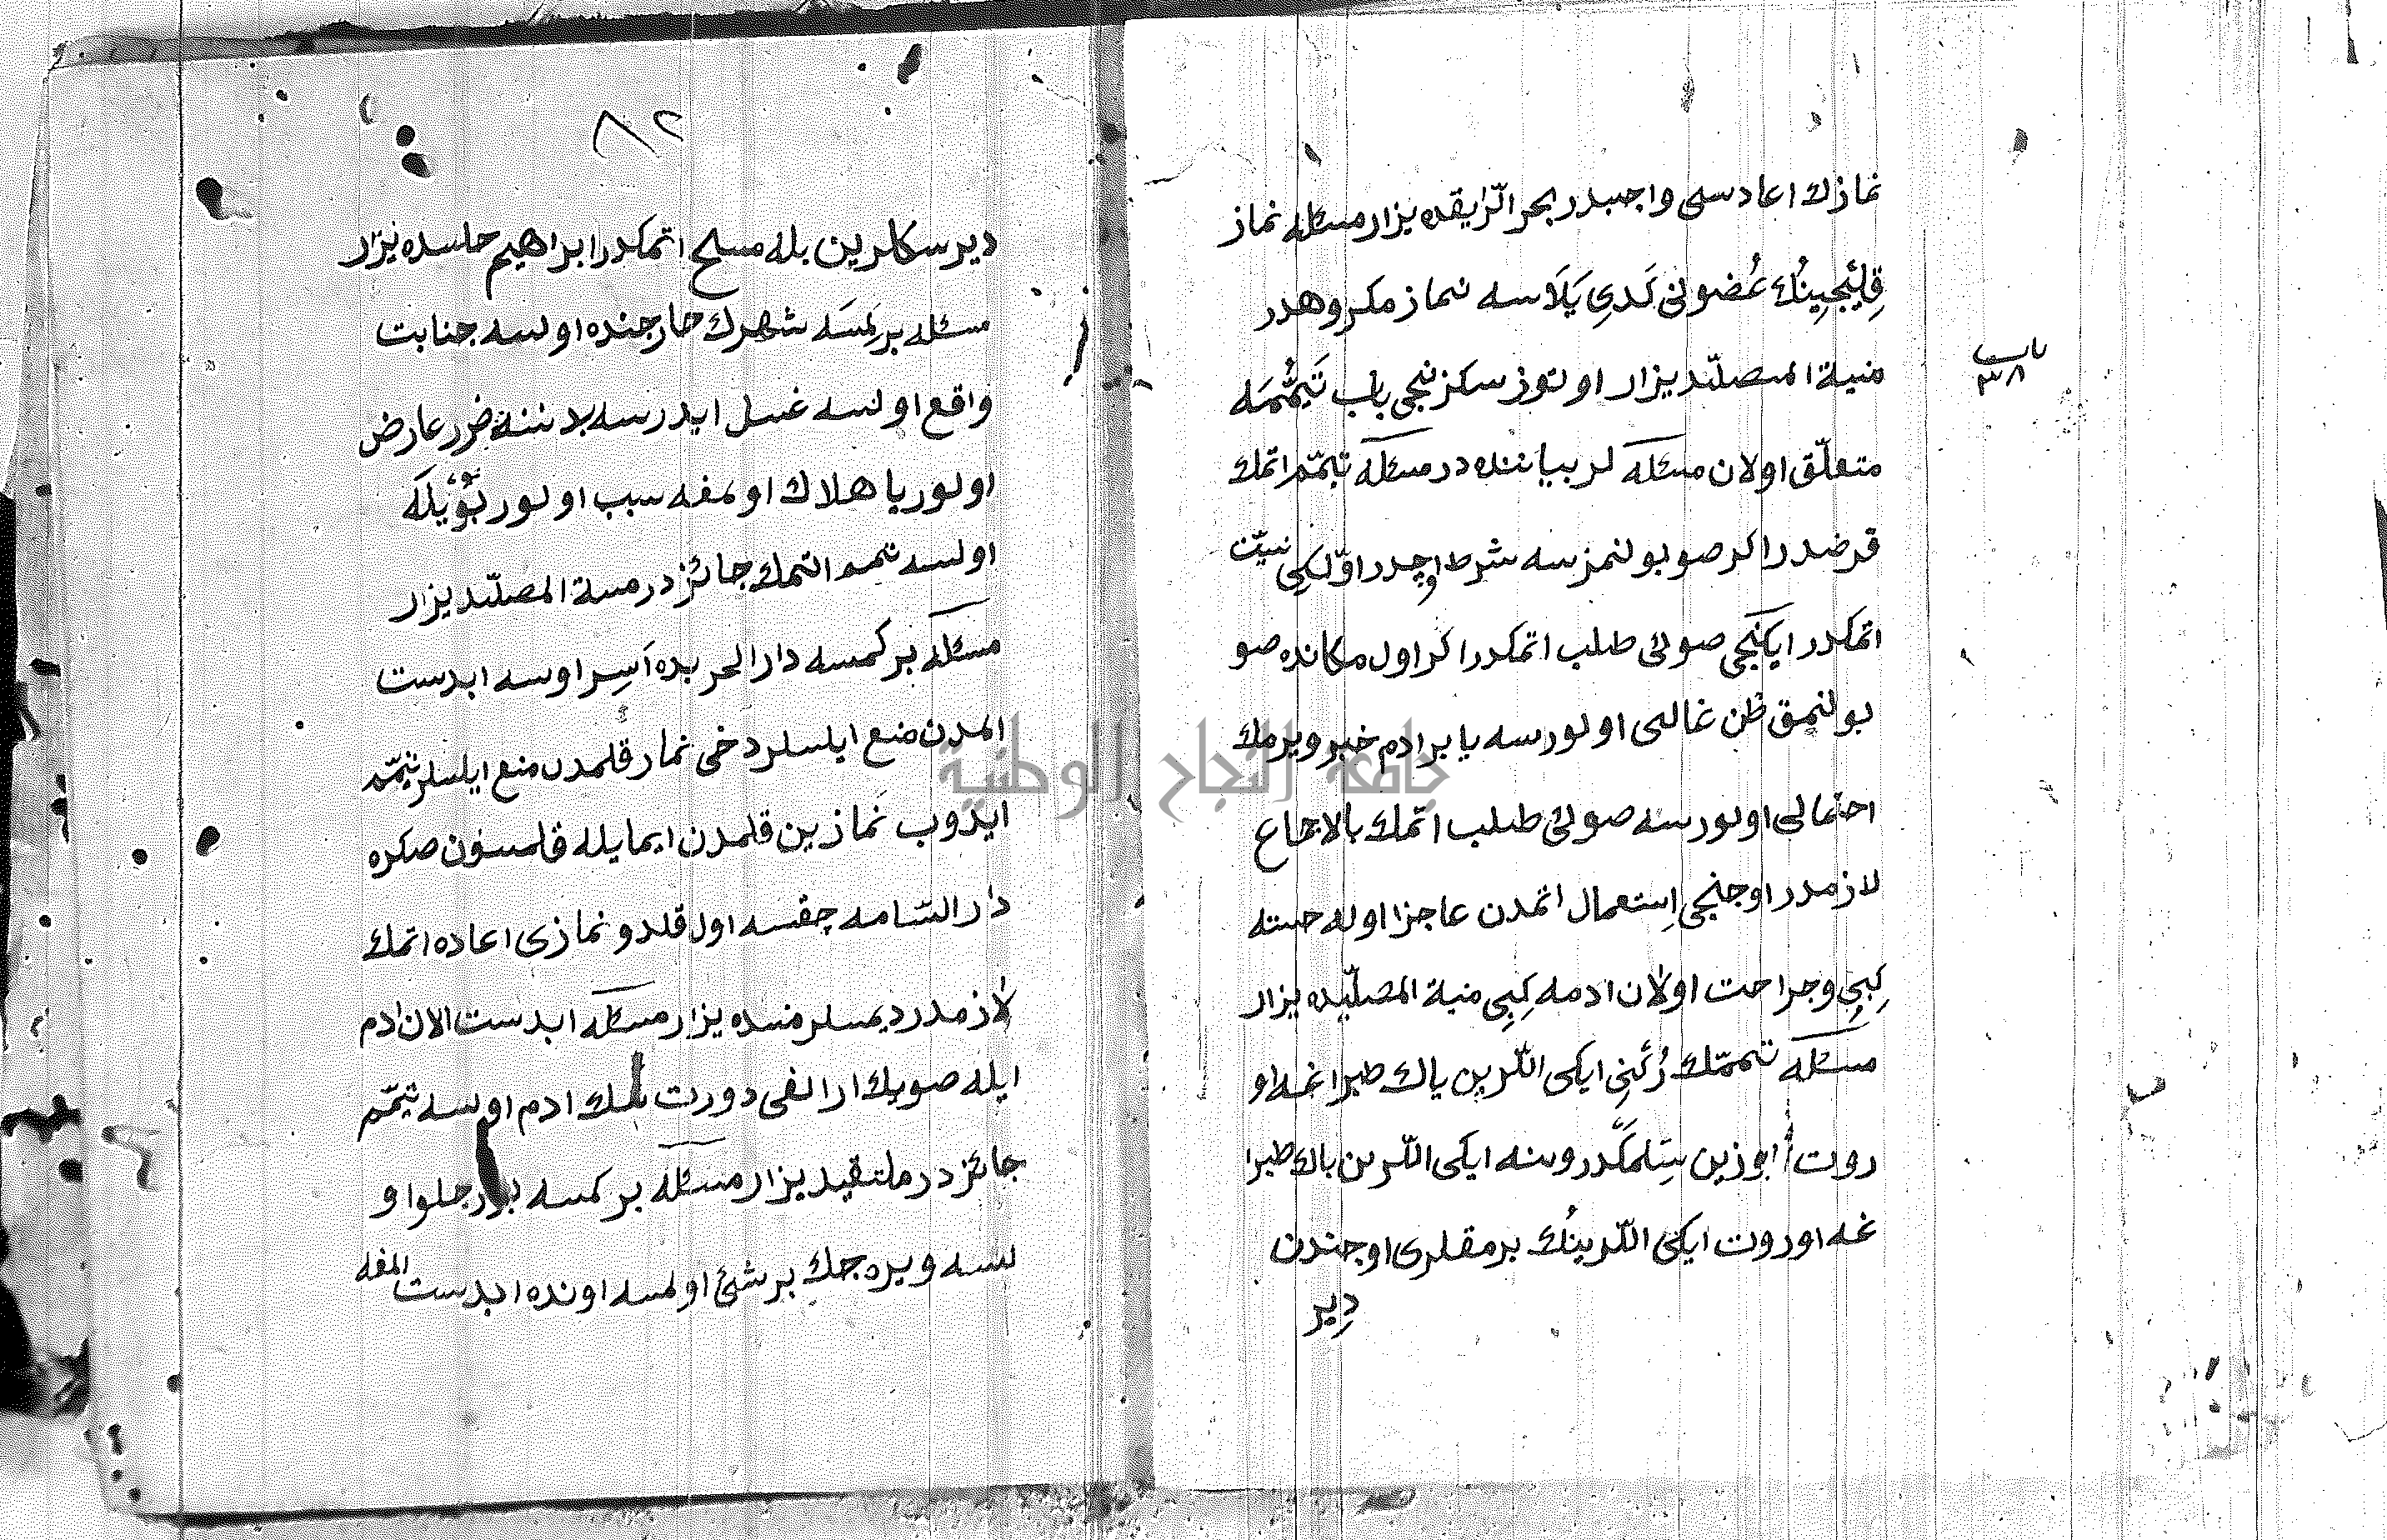 نمازك اعادسى واجبدر بحر الرّايقده يزار مسئله نماز
قِلِيْجِينُكْ عُضونى كَدىِ يَلَاسه نماز مكروهدر
منية المصلّيد يزار اوتوز سكزنجى باب تَيَمُّمَه
باب ٣٨
متعلّق اولان مسئله لر بياننده در مسئله تيمّم اتمك
فرضدر اكر صو بولنمزسه شرط اوچدر اوّلكىِ نيّت
اتمكدر ايكنجى صوئى طلب اتمكدر اكر اول مكانده صو
بولنمق ظن غالبى اولورسه يا بر ادم خبر ويرمك
احتمالى اولورسه صوئى طلب اتمك بالاجماع
لازمدر اوجنجى اِستعمال اتمدن عاجز اوله حسته
كِبىِ وجراحت اولان ادمه كِبىِ منية المصلّيده يزار
مسئله تيممّك رُكْنىِ ايكى اللّرين پاك طبراغه او
روت ابوزين سِلمكدر وينه ايكى اللّرين پاك طبرا
غه اوروت ايكى اللّرينُك برمقلرى اوجندن
دِير
٨٢
ديرسكلرين بله مسح اتمكدر ابراهيم حلبيده يزار
مسئله بر كمسَه شهرك خارجنده اولسه جنابت
واقع اولسه غسل ايدرسه بدننه ضرر عارض
اولور يا هلاك اولمغه سبب اولور بُوْيلَه
اولسه تيمم اتمك جائز در منية المصلّيد يزار
مسئله بر كمسه دار الحربده اَسِير اوسه ابدست
المدن منع ايلسلر دخى نماز قلمدن منع ايلسلر تيمّم
ايدوب نمازين قلمدن ايما يله قلسون صكره
دار السّلامه چقسه اول قلدو نمازى اعاده اتمك
لازمدر ديمسلر منيده يزار مسئله ابدست الان ادم
ايله صويك ارالغى دورت بيك ادم اوسه تيمّم
جائز در ملتقيد يزار مسئله بر كمسه يورجلو او
لسه ويره جك بر شئ اولمسه اونده ابدست المغه